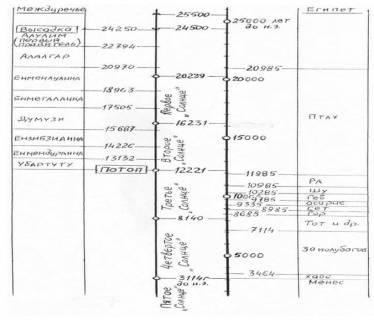 Междуречье
Египет
25500
25000 лет
до н.э.
Высадка
24250
24500
Алулим
первый
правитель
22794
Алалгар
20970
20985
20239
20000
Енменлуанна
18963
Енмегаланна
17505
Первое „Солнце”
Птах
Думузи
16231
15687
15000
Ензибзианна
14226
Второе „Солнце”
Енмендуранна
13132
Убартуту
Потоп
12221
11985
10985
Ра
10285
Шу
9785
Геб
9335
Осирис
8985
Сет
8685
Гор
Третье „Солнце”
8140
Тот и др.
7114
30 полубогов
Четвертое „Солнце”
5000
3464
Хаос
3114г
до н.э.
Менес
Пятое „Солнце”